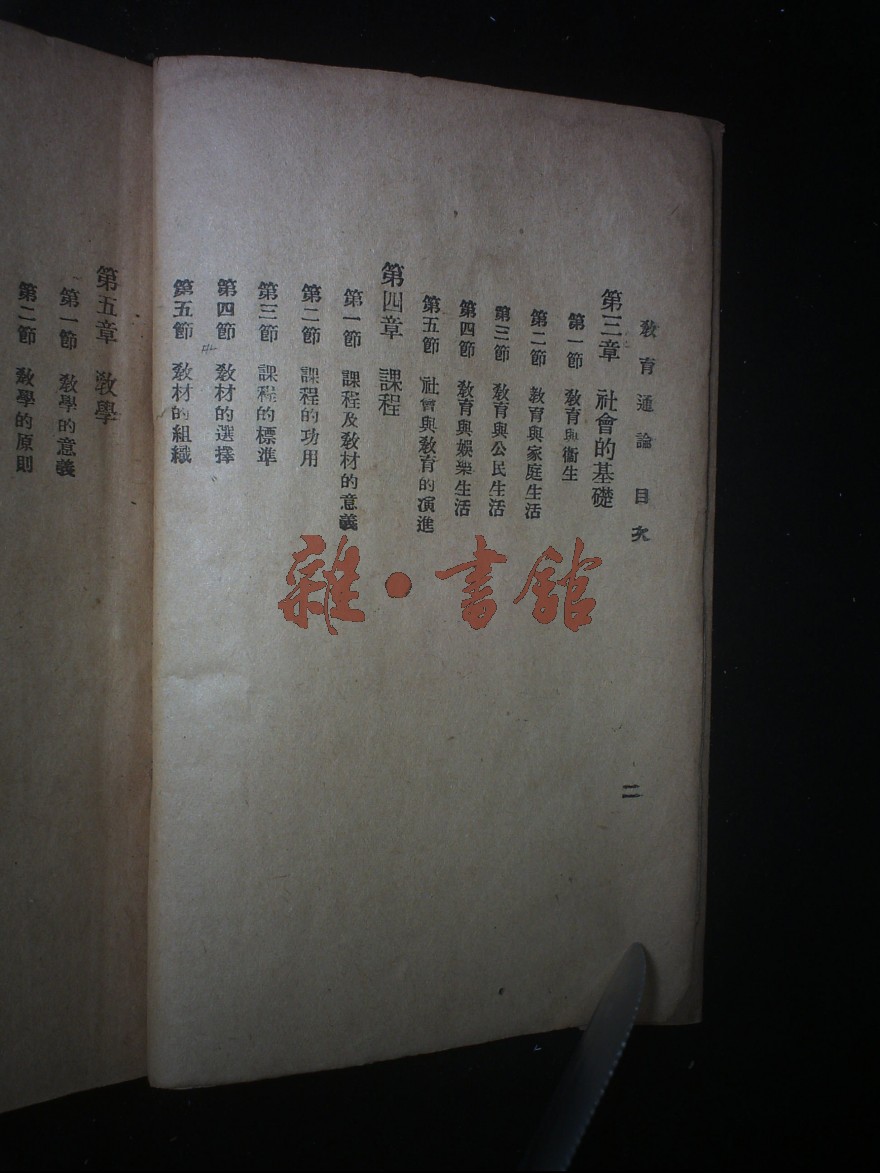 敎育通論 目次
二
第三章 社會的基礎
第一節 敎育與衞生
第二節 敎育與家庭生活
第三節 敎育與公民生活
第四節 敎育與娛樂生活
第五節 社會與敎育的演進
第四章 課程
第一節 課程及敎材的意義
第二節 課程的功用
第三節 課程的標準
第四節 敎材的選擇
第五節 敎材的組織
第五章 敎學
第一節 敎學的意義
第二節 敎學的原則
雜·書館